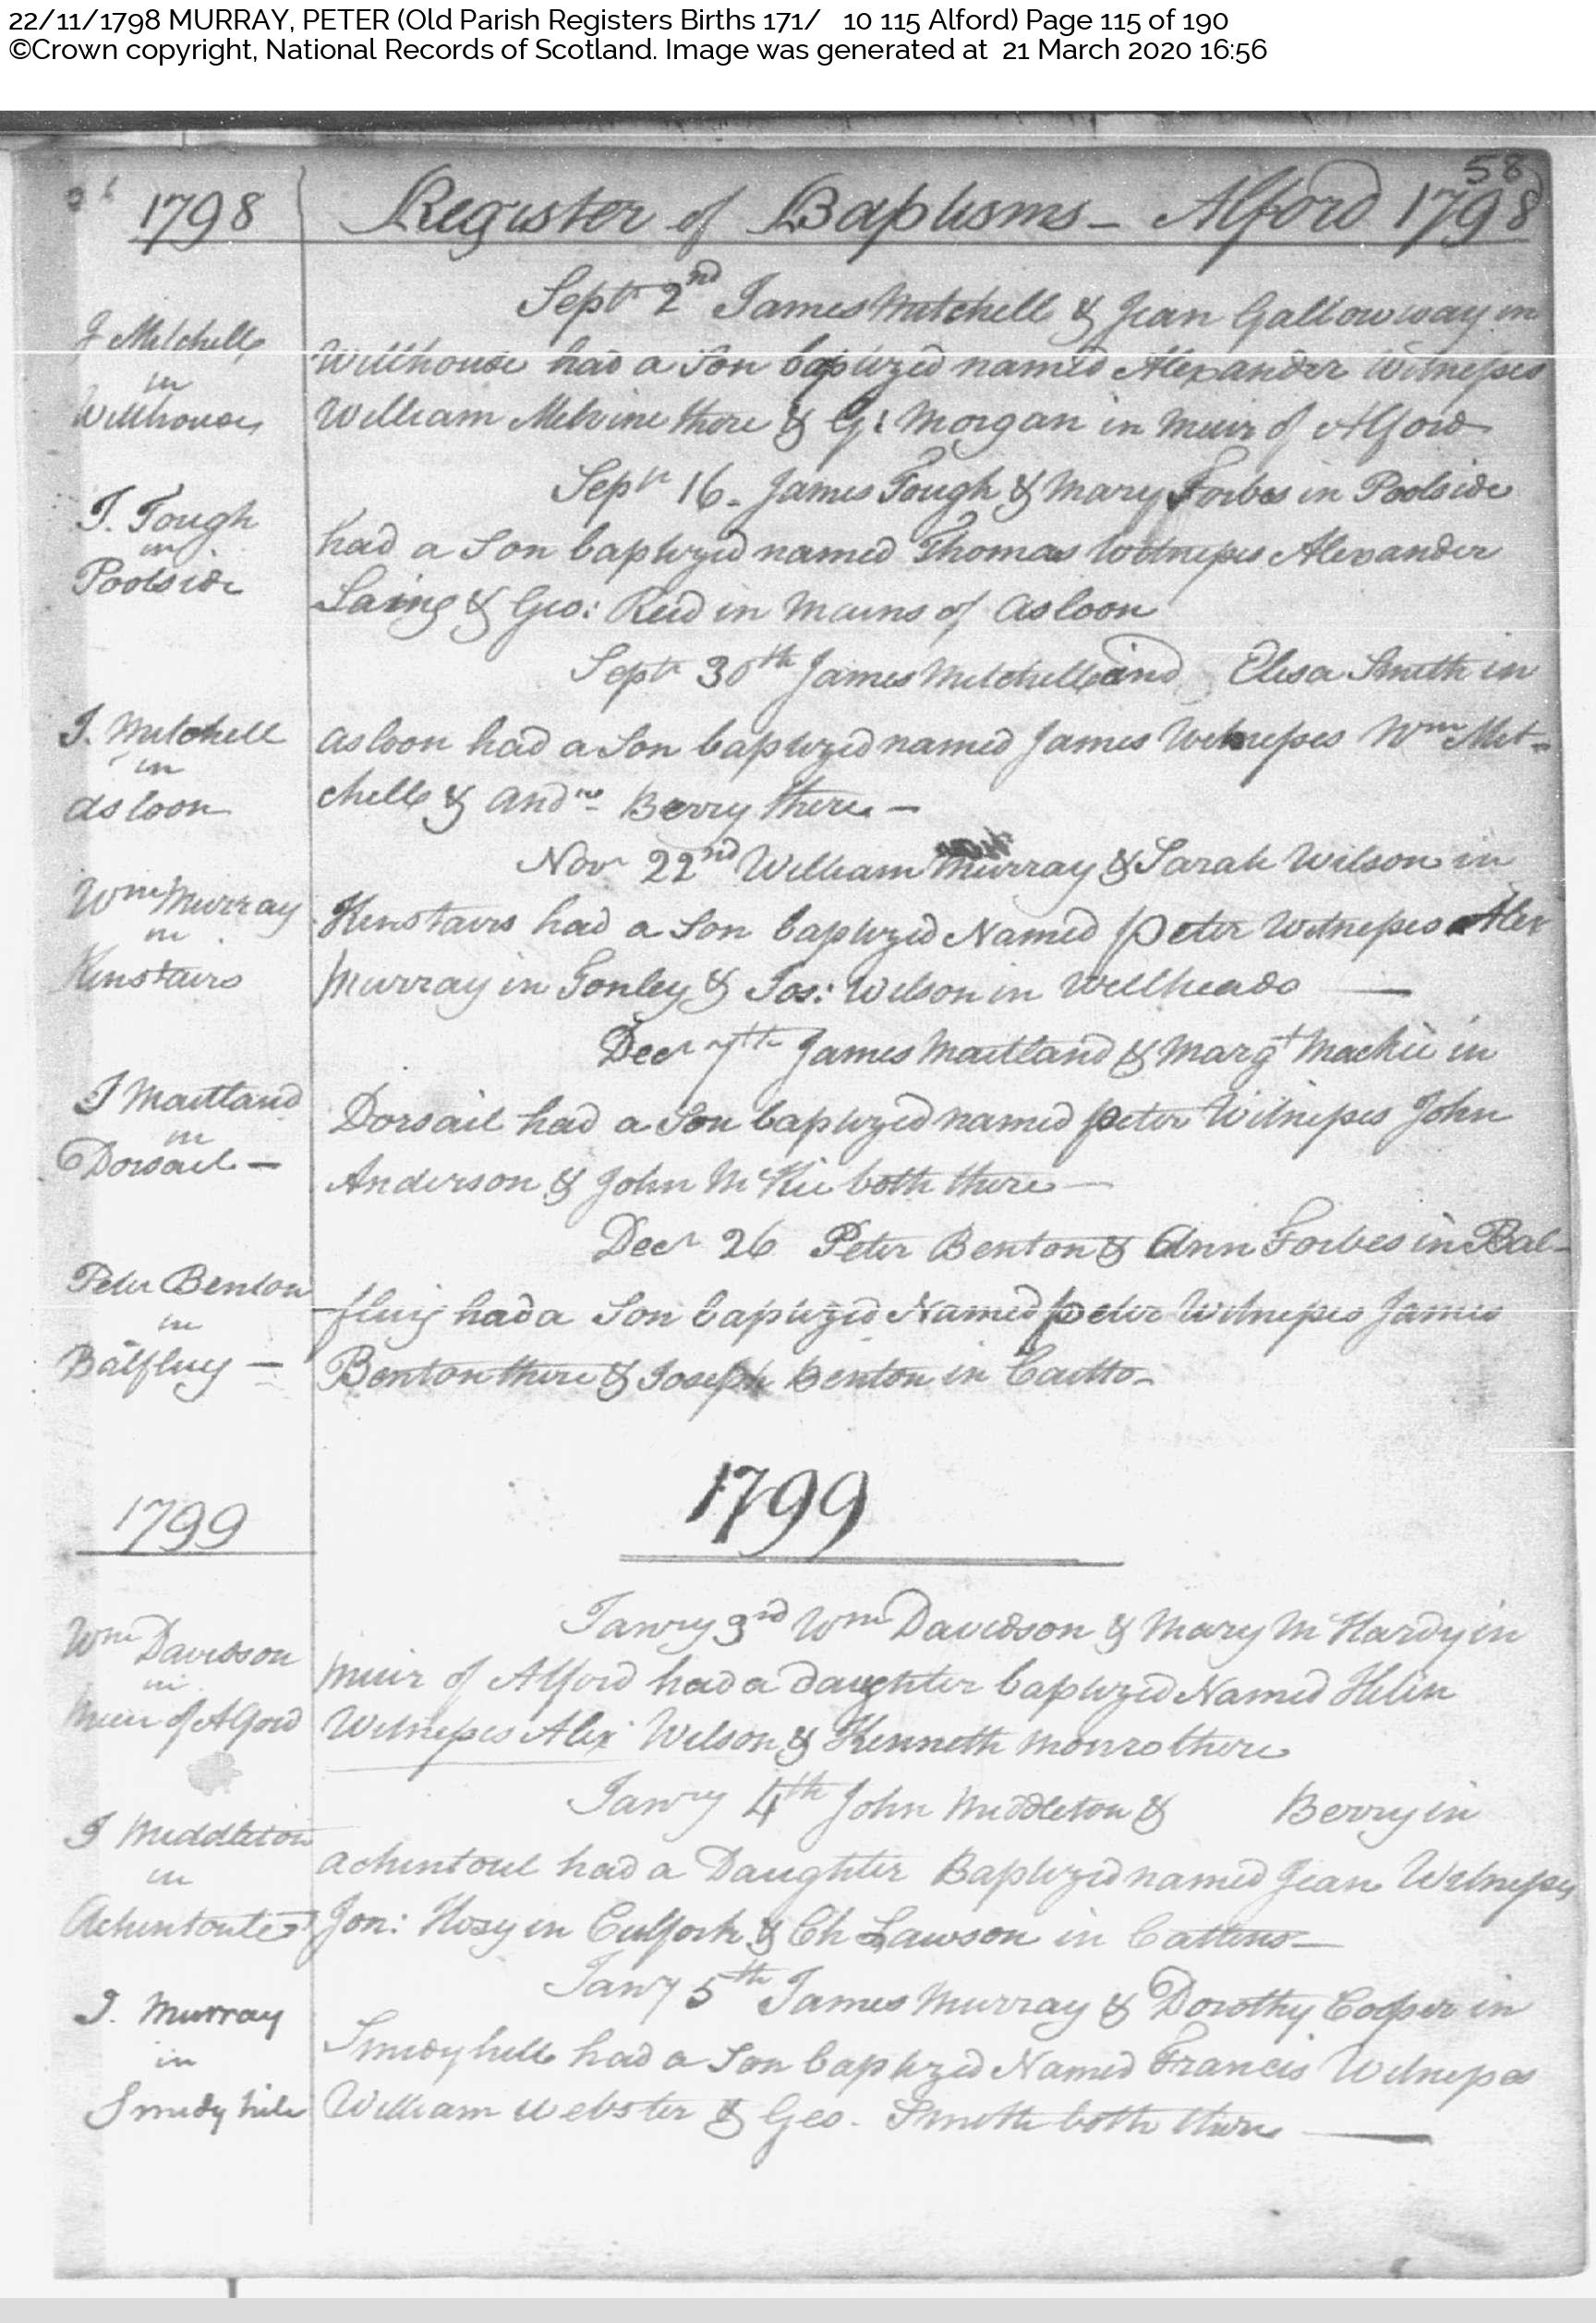 22/11/1798 MURRAY, PETER (Old Parish Registers Births 171/ 10 115 Alford) Page 115 of 190
©Crown copyright, National Records of Scotland. Image was generated at 21 March 2020 16:56
58
1798 Register of Baptisms - Alford 1798
Septr 2nd James Mitchell & Jean Galloway in
J Mitchell
in
Wellhouse
Wellhouse had a Son baptized named Alexander Witnesses
William Melvine there & G: Morgan in Muir of Alford
Septr 16 - James Tough & Mary Forbes in Poolside
J. Tough
in
Poolside
had a Son baptized named Thomas Witnesses Alexander
Laing & Geo: Reid in Mains of Asloon
Septr 30th James Mitchell and Elisa Smith in
J. Mitchell
in
Asloon
Asloon had a Son baptized named James Witnesses Wm Mit-
chell & Andw Berry there -
Novr 22nd William Murray & Sarah Wilson in
Wm Murray
in
Kinstairs
Kinstairs had a Son baptized Named Peter Witnesses Alex
Murray in Tonley & Jos: Wilson in Wellheads —
Decr 7th James Maitland & Margt Mackie in
J Maitland
in
Dorsail -
Dorsail had a Son baptized named Peter Witnesses John
Anderson & John McKie both there -
Decr 26 Peter Benton & Ann Forbes in Bal-
Peter Benton
in
Balfluig -
-fluig had a Son baptized Named Peter Witnesses James
Benton there & Joseph Benton in
1799
1799
Janry 3rd Wm Davidson & Mary McHardy in
Wm Davidson
in
Muir of Alford
Muir of Alford had a daughter baptized Named Helen
Witnesses Alexr Wilson & Kenneth Monro there
Janry 4th John Middleton & Berry in
J Middleton
in
Achintoul
Achintoul had a Daughter Baptized named Jean Witnesses
Jon: in Culfork & Ch Lawson in
Janry 5th James Murray & Dorothy Cooper in
J. Murray
in
Smidyhill
Smidyhill had a Son baptized Named Francis Witnesses
William Webster & Geo. Smith both there —